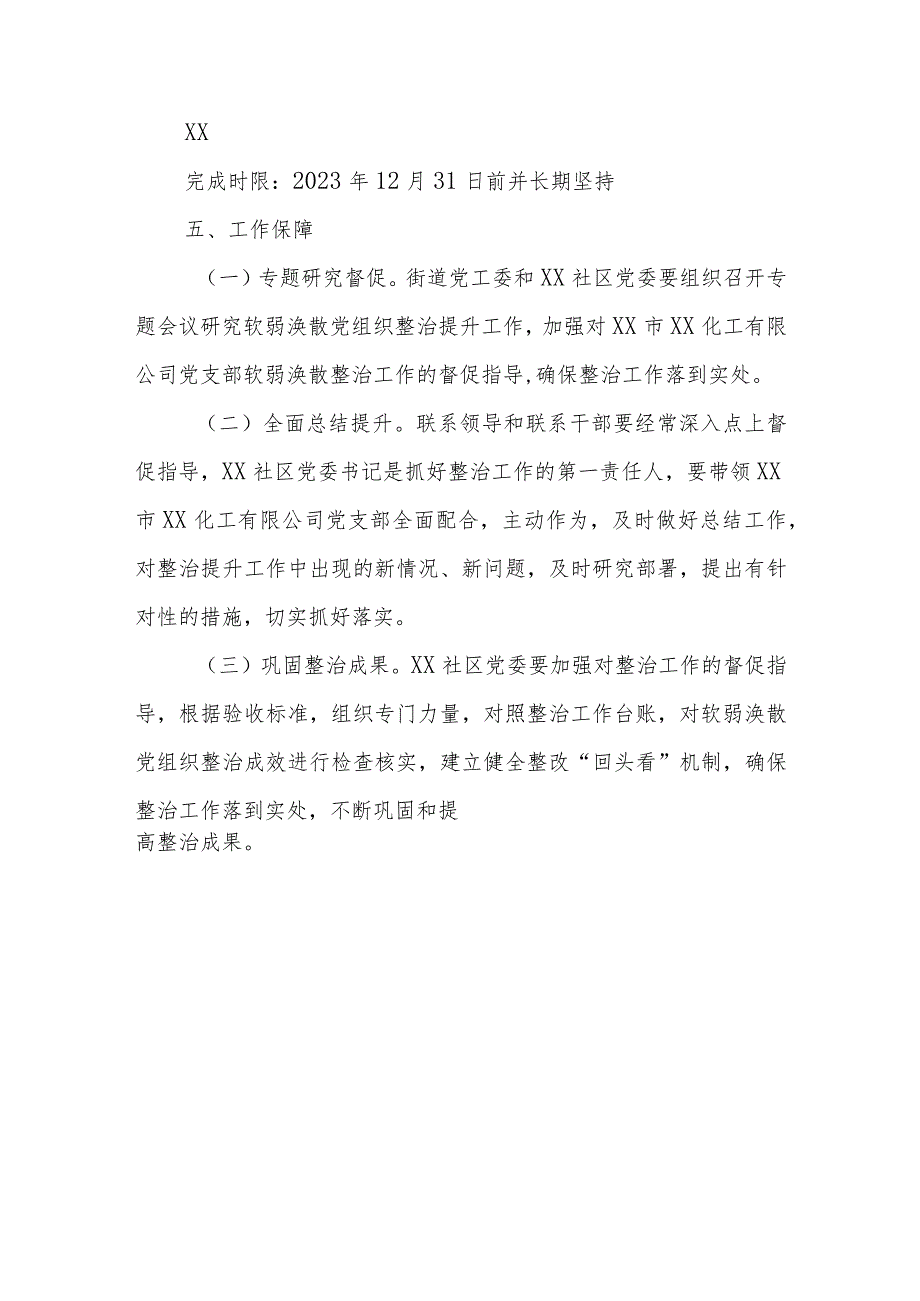 XX
完成时限：2023 年 12 月 31 日前并长期坚持
五、工作保障
（一）专题研究督促。街道党工委和 XX 社区党委要组织召开专
题会议研究软弱涣散党组织整治提升工作，加强对 XX 市 XX 化工有限
公司党支部软弱涣散整治工作的督促指导,确保整治工作落到实处。
（二）全面总结提升。联系领导和联系干部要经常深入点上督
促指导，XX 社区党委书记是抓好整治工作的第一责任人，要带领 XX
市 XX 化工有限公司党支部全面配合，主动作为，及时做好总结工作，
对整治提升工作中出现的新情况、新问题，及时研究部署，提出有针
对性的措施，切实抓好落实。
（三）巩固整治成果。XX 社区党委要加强对整治工作的督促指
导，根据验收标准，组织专门力量，对照整治工作台账，对软弱涣散
党组织整治成效进行检查核实，建立健全整改“回头看”机制，确保
整治工作落到实处，不断巩固和提
高整治成果。